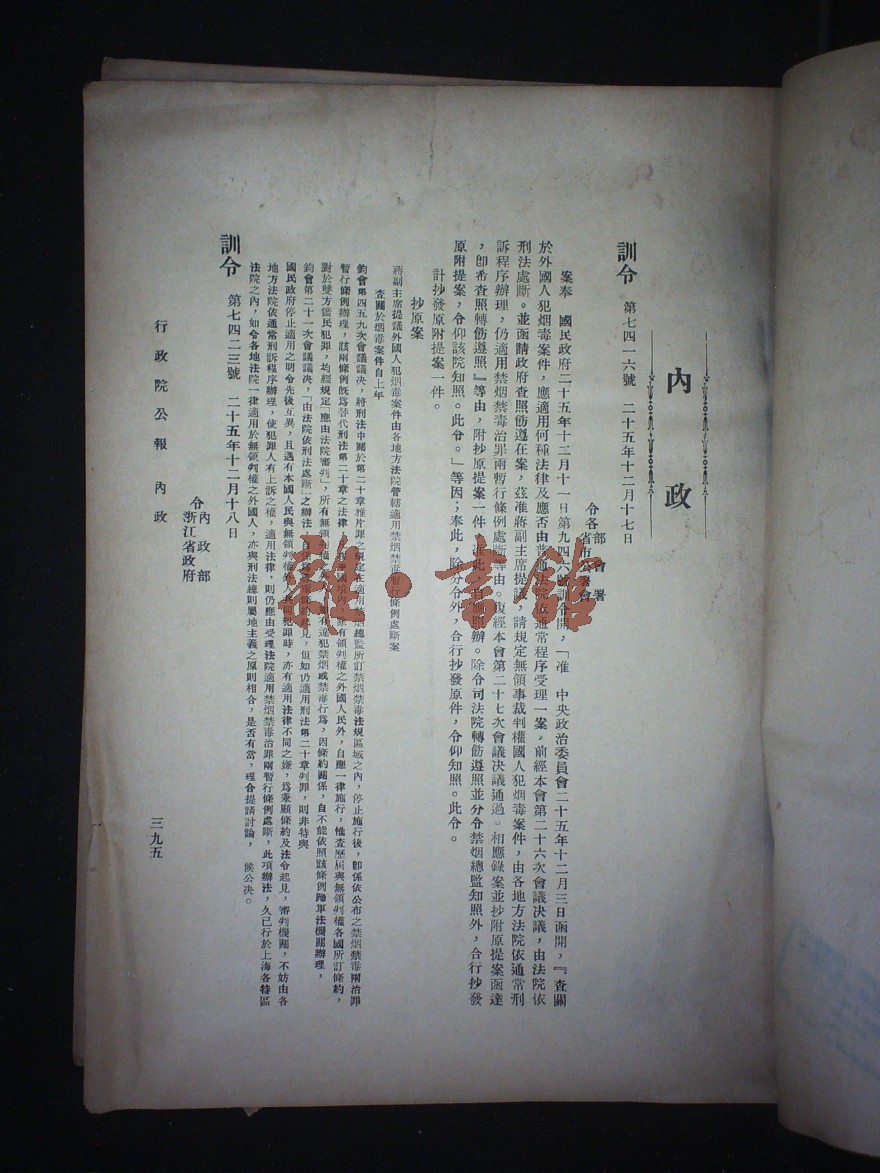 內政
訓令 第七四一六號 二十五年十二月十七日
令各部會署
省市公署會
案奉 國民政府二十五年十二月十一日第九四六號訓令開，「准 中央政治委員會二十五年十二月三日函開，『查關
於外國人犯烟毒案件，應適用何種法律及應否由普通法院依通常程序受理一案。前經本會第二十六次會議决議，由法院依
刑法處斷。並函請政府查照飭遵在案，茲准蔣副主席提議，請規定無領事裁判權國人犯烟毒案件，由各地方法院依通常刑
訴程序辦理，仍適用禁烟禁毒治罪兩暫行條例處斷等由。復經本會第二十七次會議决議通過。相應錄案並抄附原提案函達
，卽希查照轉飭遵照』等由，附抄原提案一件，准此，自應照辦。除令司法院轉飭遵照並分令禁烟總監知照外，合行抄發
原附提案，令仰該院知照。此令。」等因；奉此，除分令外，合行抄發原件，令仰知照。此令。
計抄發原附提案一件。
抄原案
蔣副主席提議外國人犯烟毒案件由各地方法院管轄適用禁烟禁毒暫行條例處斷案
查關於烟毒案件自上年
鈞會第四五九次會議議决，將刑法中關於第二十章雅片罪之規定在適用禁烟總監所訂禁烟禁毒法規區域之內，停止施行後，卽係依公布之禁烟禁毒兩治罪
暫行條例辦理，該兩條例旣為替代刑法第二十章之法律，在中國境內除有領判權之外國人民外，自應一律施行，惟查歷屆與無領判權各國所訂條約，
對於雙方僑民犯罪，均經規定「應由法院審判」，所有無領判權之外國人民有違犯禁烟或禁毒行為，因條約關係，自不能依照該條例歸軍法機關辦理，
鈞會第二十一次會議議决，「由法院依刑法處斷」之辦法，自係為適應條約起見，但如仍適用刑法第二十章判罪，則非特與
國民政府停止適用之明令先後互異，且遇有本國人民與無領判權外人共同犯罪時，亦有適用法律不同之嫌，為兼顧條約及法令起見，審判機關，不妨由各
地方法院依通常刑訴程序辦理，使犯罪人有上訴之權，適用法律，則仍應由受理法院適用禁烟禁毒治罪兩暫行條例處斷，此項辦法，久已行於上海各特區
法院之內，如令各地法院一律適用於無領判權之外國人，亦與刑法總則屬地主義之原則相合，是否有當，理合提請討論， 候公决。
訓令 第七四二三號 二十五年十二月十八日
令內政部
浙江省政府
行政院公報 內政
三九五